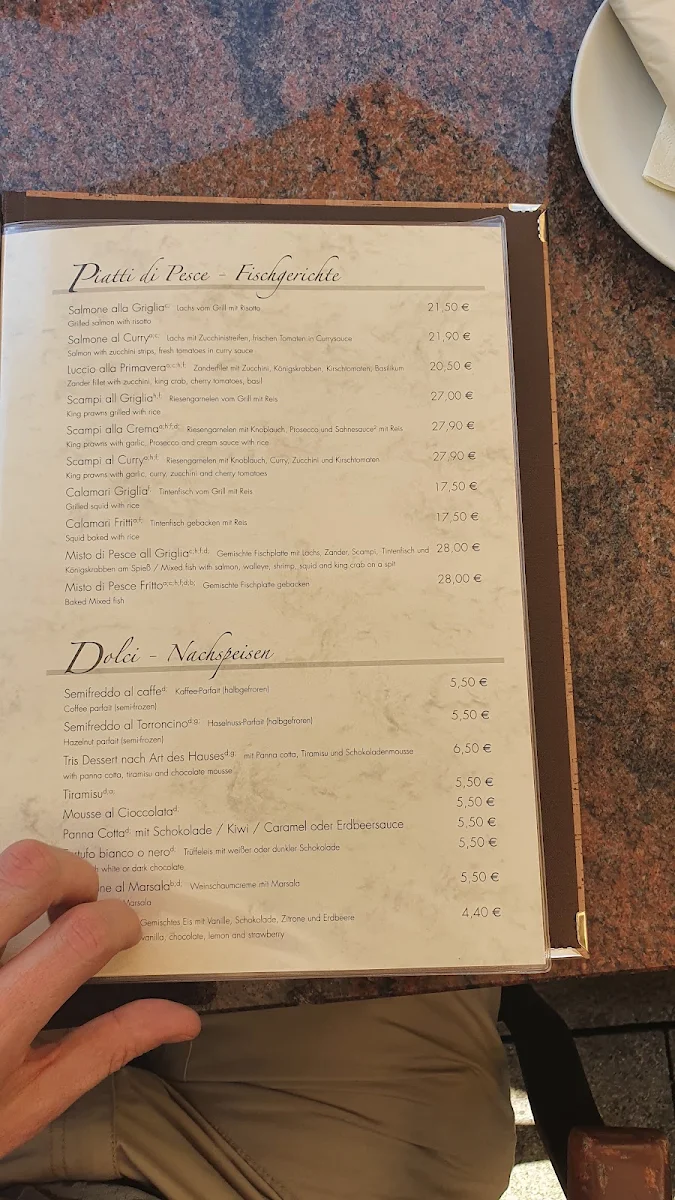 Piatti di Pesce - Fischgerichte
Salmone alla Griglia Lachs vom Grill mit Risotto 21,50 €
Grilled salmon with risotto
Salmone al Curry Lachs mit Zucchinistreifen, frischen Tomaten in Currysauce 21,90 €
Salmon with zucchini strips, fresh tomatoes in curry sauce
Luccio alla Primavera Zanderfilet mit Zucchini, Königskrabben, Kirschtomaten, Basilikum 20,50 €
Zander fillet with zucchini, king crab, cherry tomatoes, basil
Scampi all Griglia Riesengarnelen vom Grill mit Reis 27,00 €
King prawns grilled with rice
Scampi alla Crema Riesengarnelen mit Knoblauch, Prosecco und Sahnesauce² mit Reis 27,90 €
King prawns with garlic, Prosecco and cream sauce with rice
Scampi al Curry Riesengarnelen mit Knoblauch, Curry, Zucchini und Kirschtomaten 27,90 €
King prawns with garlic, curry, zucchini and cherry tomatoes
Calamari Griglia Tintenfisch vom Grill mit Reis 17,50 €
Grilled squid with rice
Calamari Fritti Tintenfisch gebacken mit Reis 17,50 €
Squid baked with rice
Misto di Pesce all Griglia Gemischte Fischplatte mit Lachs, Zander, Scampi, Tintenfisch und 28,00 €
Königskrabben am Spieß / Mixed fish with salmon, walleye, shrimp, squid and king crab on a spit
Misto di Pesce Fritto Gemischte Fischplatte gebacken 28,00 €
Baked Mixed fish
Dolci - Nachspeisen
Semifreddo al caffe Kaffee-Parfait (halbgefroren) 5,50 €
Coffee parfait (semi-frozen)
Semifreddo al Torroncino Haselnuss-Parfait (halbgefroren) 5,50 €
Hazelnut parfait (semi-frozen)
Tris Dessert nach Art des Hauses mit Panna cotta, Tiramisu und Schokoladenmousse 6,50 €
with panna cotta, tiramisu and chocolate mousse
Tiramisu 5,50 €
Mousse al Cioccolata 5,50 €
Panna Cotta mit Schokolade / Kiwi / Caramel oder Erdbeersauce 5,50 €
bianco o nero Trüffeleis mit weißer oder dunkler Schokolade 5,50 €
white or dark chocolate
al Marsala Weinschaumcreme mit Marsala 5,50 €
Marsala
Gemischtes Eis mit Vanille, Schokolade, Zitrone und Erdbeere 4,40 €
vanilla, chocolate, lemon and strawberry